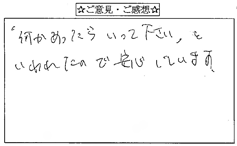 ☆ご意見・ご感想☆
“何かあったらいって下さい，と
いわれたので安心しています